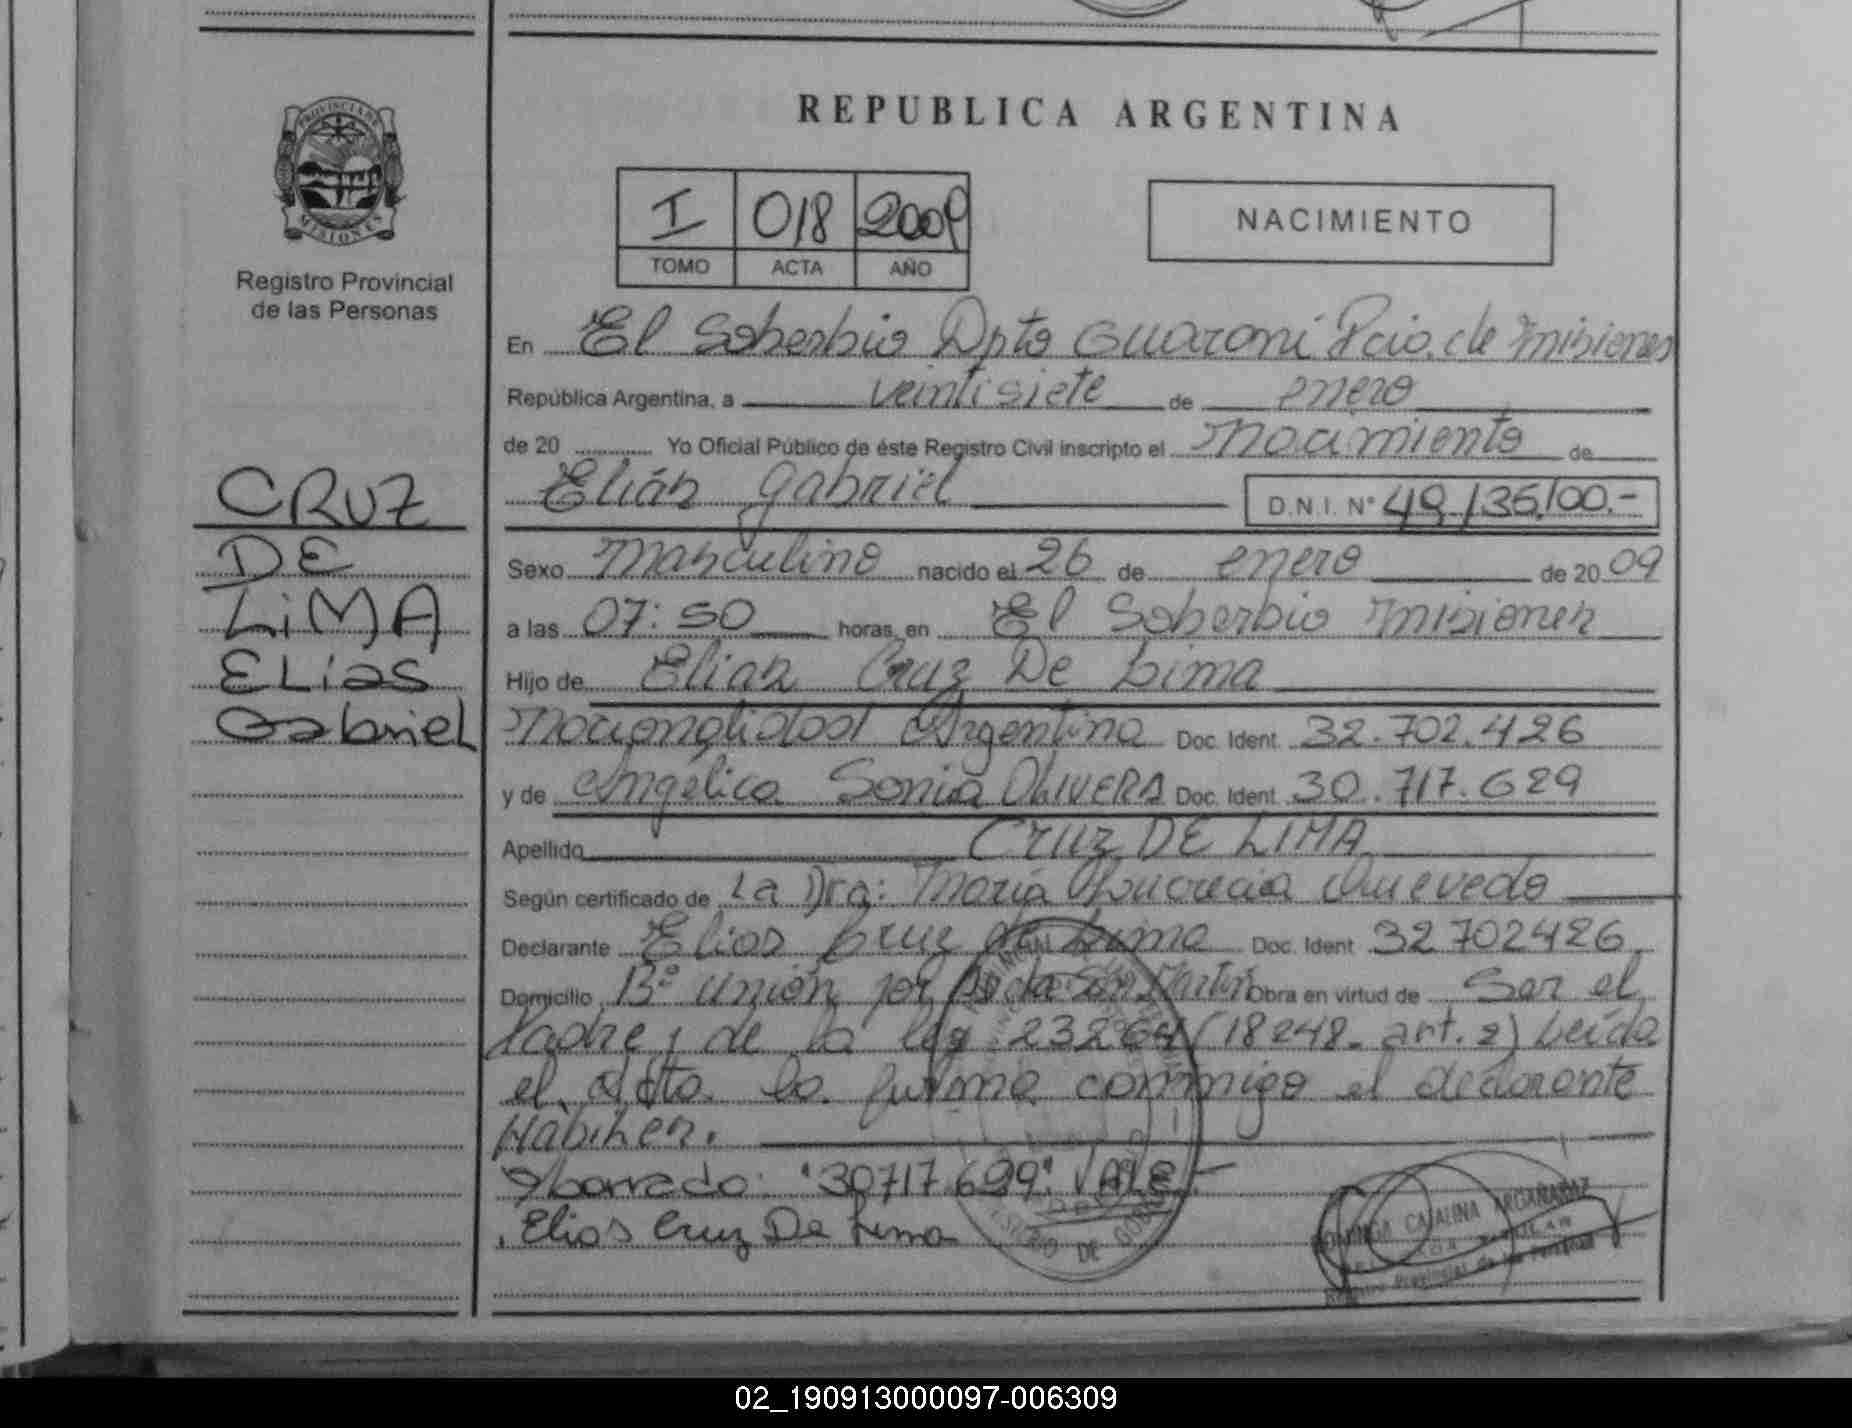 REPUBLICA ARGENTINA
PROVINCIA DE MISIONES
Registro Provincial
de las Personas
I 018 2009
TOMO ACTA AÑO
NACIMIENTO
En El Soberbio Dpto Guaraní Pcia. de Misiones
República Argentina, a veintisiete de enero
de 20 Yo Oficial Público de éste Registro Civil inscripto el Nacimiento de
Elías Gabriel D.N.I. N° 49.135.100.-
Sexo Masculino nacido el 26 de enero de 20 09
a las 07:50 horas, en El Soberbio Misiones
Hijo de Elias Cruz De Lima
Nacionalidad Argentina Doc. Ident. 32.702.426
y de Angélica Sonia OLIVERA Doc. Ident. 30.717.629
Apellido CRUZ DE LIMA
Según certificado de La Dra: María Lucrecia Quevedo
Declarante Elias Cruz de Lima Doc. Ident 32702426
Domicilio B° Unión por Avda San Martín Obra en virtud de Ser el
Padre y de la ley 23264 (18248. art. 2) Leída
el Acta la firma conmigo el declarante
Habiher.
borrado: "30717.629". VALE.-
Elias Cruz De Lima
CRUZ
DE
LiMA
ELias
Gabriel
CATALINA ARGAÑARAZ
Registro Provincial de las Personas
02_190913000097-006309